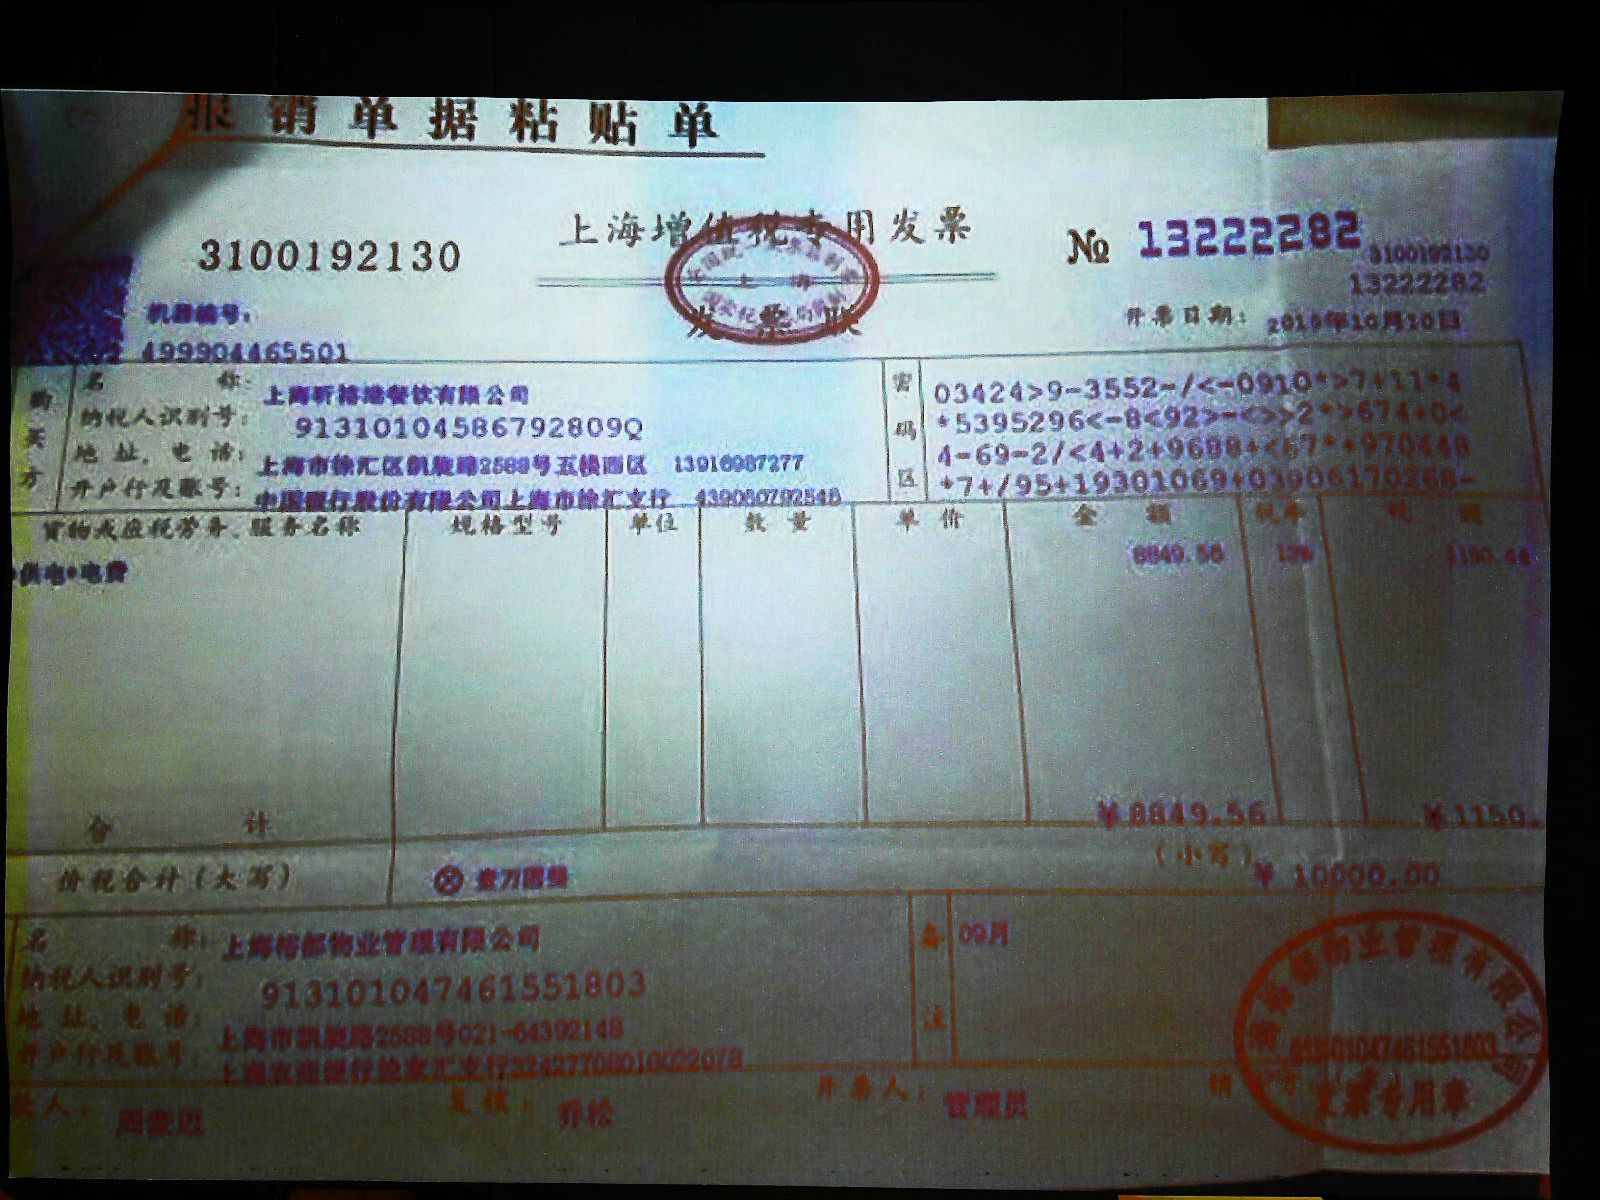 报销单据粘贴单
3100192130
上海增值税专用发票
发票联
№ 13222282
3100192130
13222282
机器编号:
499904465501
开票日期: 2019年10月10日
购买方
名 称: 上海昕格港餐饮有限公司
纳税人识别号: 91310104586792809Q
地址、电话: 上海市徐汇区凯旋路2588号五楼西区 13916987277
开户行及账号: 中国银行股份有限公司上海市徐汇支行 439080792548
密码区
03424>9-3552-/<-0910*>7+11*4
*5395296<-8<92>-<>>2*>674+0<
4-69-2/<4+2+9688+<67*+970448
*7+/95+19301069+03906170268-
货物或应税劳务、服务名称 规格型号 单位 数量 单价 金额 税率 税额
*供电*电费 8849.56 13% 1150.44
合 计 ¥8849.56 ¥1150.
价税合计(大写) ⊗ 壹万圆整 (小写) ¥ 10000.00
名 称: 上海裕都物业管理有限公司
纳税人识别号: 913101047461551803
地址、电话: 上海市凯旋路2588号021-64302148
开户行及账号: 上海农商银行徐家汇支行32427708010022078
备注
09月
款人: 周 复核: 乔松 开票人: 管理员 销
物业管理有限公司
913101047461551803
发票专用章